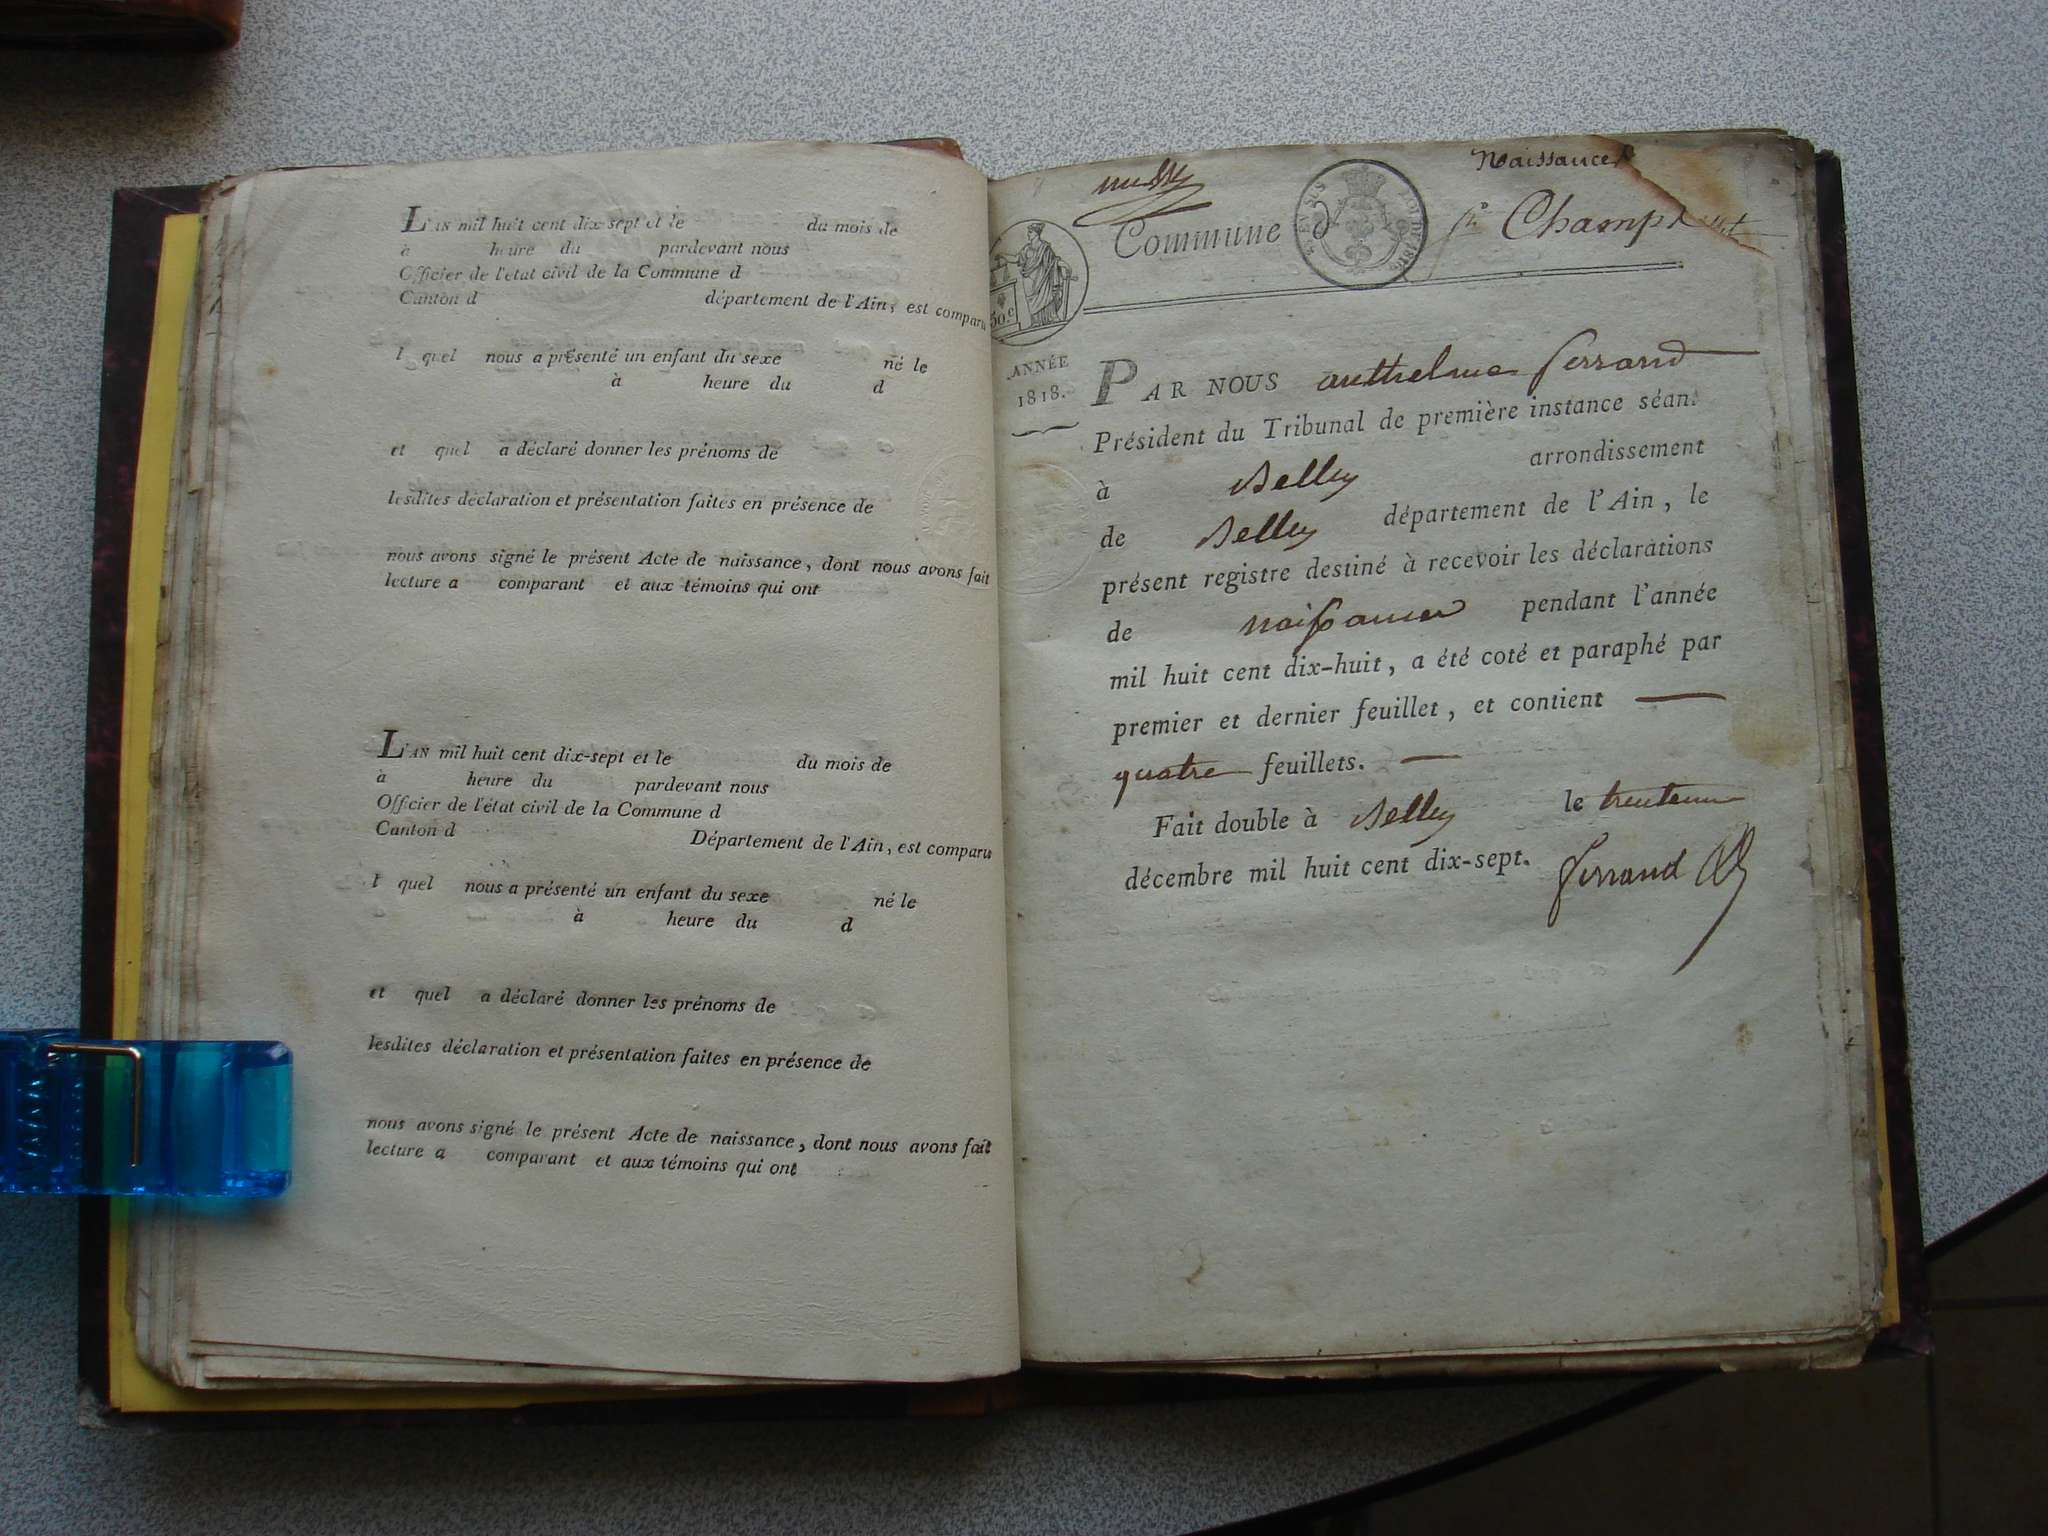 L'AN mil huit cent dix-sept et le du mois de
à heure du pardevant nous
Officier de l'état civil de la Commune d
Canton d département de l'Ain, est comparu
l quel nous a présenté un enfant du sexe né le
à heure du d
et quel a déclaré donner les prénoms de
lesdites déclaration et présentation faites en présence de
nous avons signé le présent Acte de naissance, dont nous avons fait
lecture a comparant et aux témoins qui ont
L'AN mil huit cent dix-sept et le du mois de
à heure du pardevant nous
Officier de l'état civil de la Commune d
Canton d Département de l'Ain, est comparu
l quel nous a présenté un enfant du sexe né le
à heure du d
et quel a déclaré donner les prénoms de
lesdites déclaration et présentation faites en présence de
nous avons signé le présent Acte de naissance, dont nous avons fait
lecture a comparant et aux témoins qui ont
Naissances
Commune d
50.c
ANNÉE
1818.
PAR NOUS anthelme ferrand
Président du Tribunal de première instance séant
à Belley arrondissement
de Belley département de l'Ain, le
présent registre destiné à recevoir les déclarations
de naissances pendant l'année
mil huit cent dix-huit, a été coté et paraphé par
premier et dernier feuillet, et contient
quatre feuillets.
Fait double à Belley le trente un
décembre mil huit cent dix-sept.
ferrand